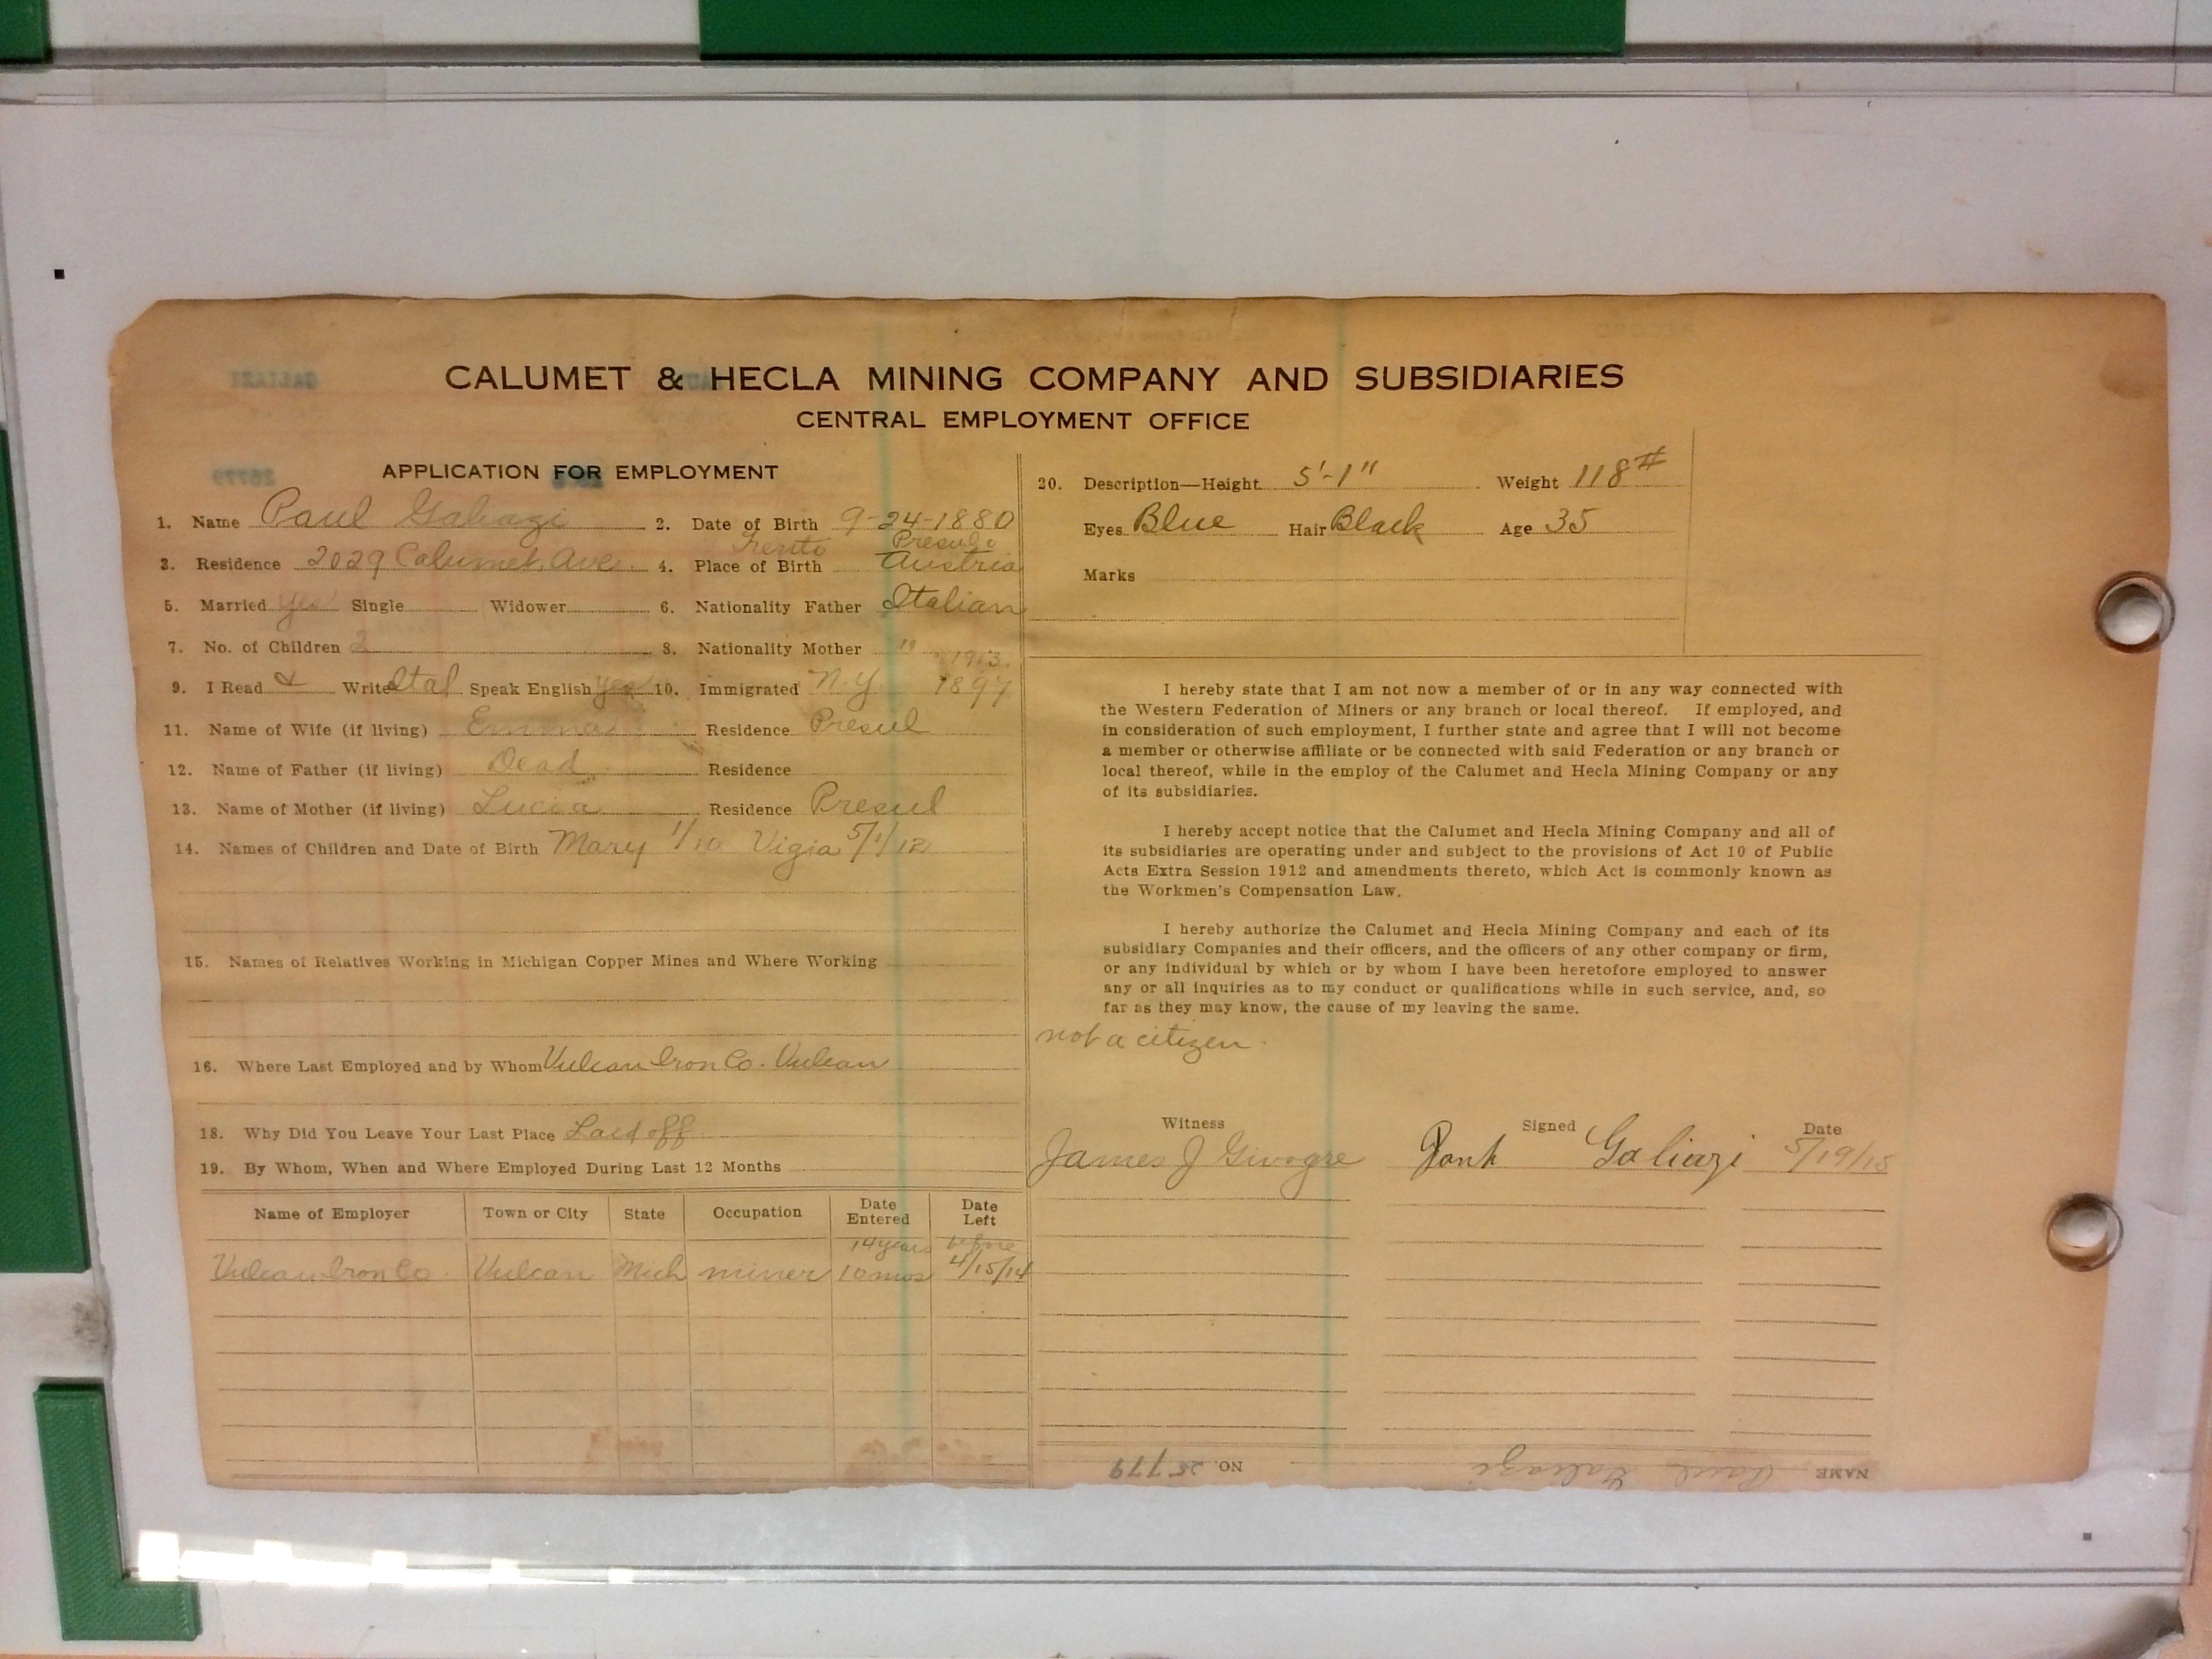 CALUMET & HECLA MINING COMPANY AND SUBSIDIARIES
CENTRAL EMPLOYMENT OFFICE
APPLICATION FOR EMPLOYMENT
1. Name Paul Galiazi 2. Date of Birth 9-24-1880
Trento Presulo
3. Residence 2029 Calumet Ave. 4. Place of Birth Austria
5. Married yes Single Widower 6. Nationality Father Italian
7. No. of Children 2 8. Nationality Mother "
1913.
9. I Read & Write Ital Speak English yes 10. Immigrated N.Y. 1897
11. Name of Wife (if living) Emma Residence Presul
12. Name of Father (if living) Dead Residence
13. Name of Mother (if living) Lucia Residence Presul
14. Names of Children and Date of Birth Mary 1/10 Vigia 5/1/12
15. Names of Relatives Working in Michigan Copper Mines and Where Working
16. Where Last Employed and by Whom Vulcan Iron Co. Vulcan
18. Why Did You Leave Your Last Place Laid off
19. By Whom, When and Where Employed During Last 12 Months
Name of Employer Town or City State Occupation Date Entered Date Left
14 years before
Vulcan Iron Co. Vulcan Mich miner 10 mos 4/15/14
20. Description—Height 5'-1" Weight 118#
Eyes Blue Hair Black Age 35
Marks
I hereby state that I am not now a member of or in any way connected with
the Western Federation of Miners or any branch or local thereof. If employed, and
in consideration of such employment, I further state and agree that I will not become
a member or otherwise affiliate or be connected with said Federation or any branch or
local thereof, while in the employ of the Calumet and Hecla Mining Company or any
of its subsidiaries.
I hereby accept notice that the Calumet and Hecla Mining Company and all of
its subsidiaries are operating under and subject to the provisions of Act 10 of Public
Acts Extra Session 1912 and amendments thereto, which Act is commonly known as
the Workmen's Compensation Law.
I hereby authorize the Calumet and Hecla Mining Company and each of its
subsidiary Companies and their officers, and the officers of any other company or firm,
or any individual by which or by whom I have been heretofore employed to answer
any or all inquiries as to my conduct or qualifications while in such service, and, so
far as they may know, the cause of my leaving the same.
not a citizen.
Witness Signed Date
James J Galiazi 5/19/15
NAME Paul Galiazi NO. 25779